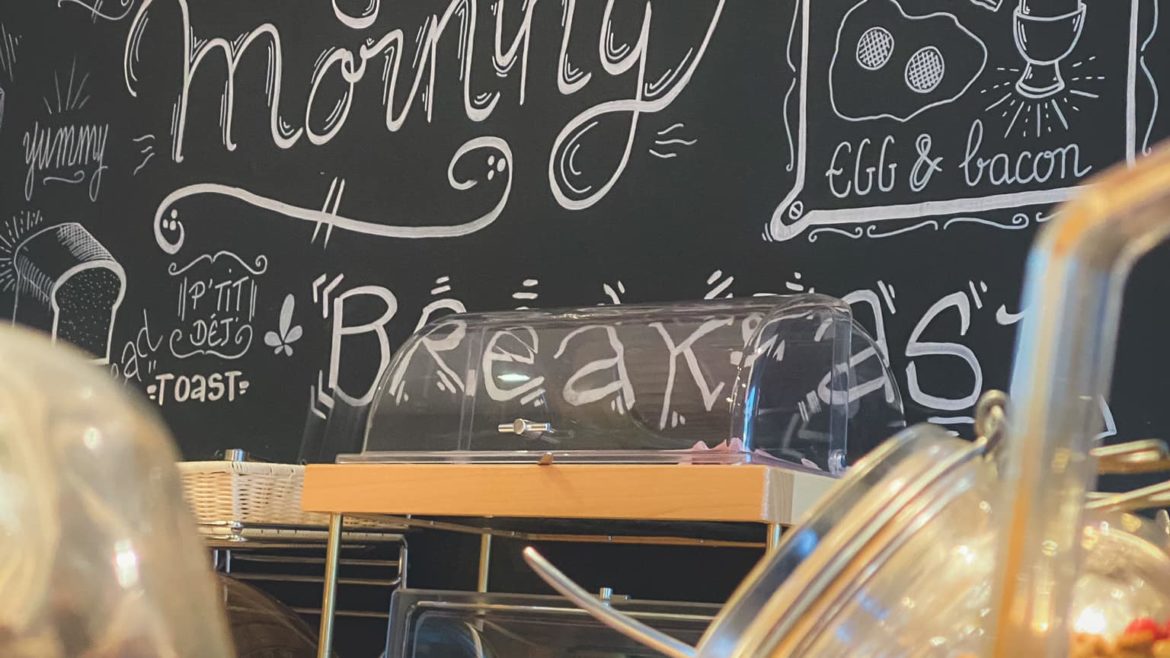 morning
yummy
EGG & bacon
P'TIT
DÉJ'
TOAST
BreaKfas